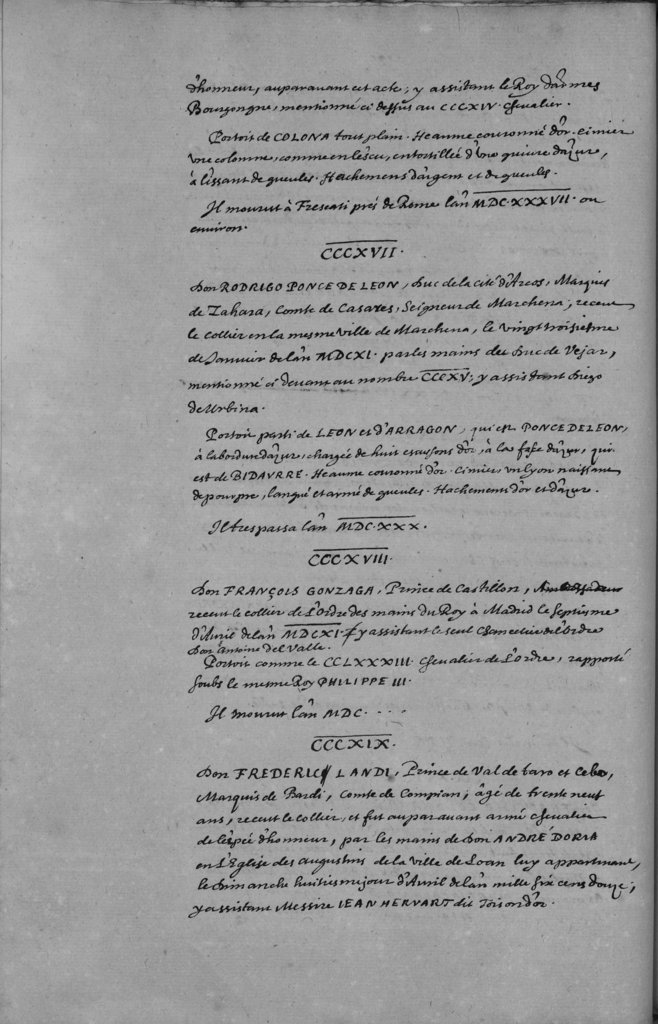 d'honneur, auparauant cet acte; y assistant le Roy d'armes
Bourgongne, mentionné ci dessus au CCCXIV. Chevalier.
Portoit de COLONA tout plain. Heaume couronné d'or. Cimier
vne colomne, comme en l'escu, entortillée d'vne guiure d'azur,
à l'issant de gueules. Hachemens d'argent et de gueules.
Il mourut à Frescati prés de Rome l'an MDC.XXXVII. ou
environ.
CCCXVII.
Don RODRIGO PONCE DE LEON, Duc de la cité d'Arcos, Marquis
de Zahara, Comte de Casares, Seigneur de Marchena, receut
le collier en la mesme ville de Marchena, le vingt troisiesme
de Januier de l'an MDCXI. par les mains du Duc de Vejar,
mentionné ci deuant au nombre CCCXV; y assistant Diego
de Urbina.
Portoit parti de LEON et d'ARRAGON, qui est PONCE DE LEON,
à la bordure d'azur, chargée de huit escussons d'or, à la fasce d'azur, qui
est de BIDAVRRE. Heaume couronné d'or. Cimier, vn Lyon naissant
de pourpre, langué et armé de gueules. Hachements d'or et d'azur.
Il trespassa l'an MDC.XXX.
CCCXVIII.
Don FRANÇOIS GONZAGA, Prince de Castillon, Ambassadeur
receut le collier de l'Ordre des mains du Roy à Madrid le septiesme
d'Auril de l'an MDCXI. y assistant le seul Chancelier de l'Ordre
Don Antoine del Valle.
Portoit comme le CCLXXXIII Chevalier de l'Ordre, rapporté
soubs le mesme Roy PHILIPPE III.
Il mourut l'an MDC....
CCCXIX.
Don FREDERIC LANDI, Prince de Val de taro et Cebo,
Marquis de Bardi, Comte de Compian, âgé de trente neuf
ans, receut le collier, et fut auparauant armé chevalier
de l'espée d'honneur, par les mains de Don ANDRÉ DORIA
en l'Eglise des Augustins de la ville de Loan luy appartenant,
le Dimanche huitiesme jour d'Auril de l'an mille six cens douze;
y assistant Messire IEAN HERVART dit Toison d'or.